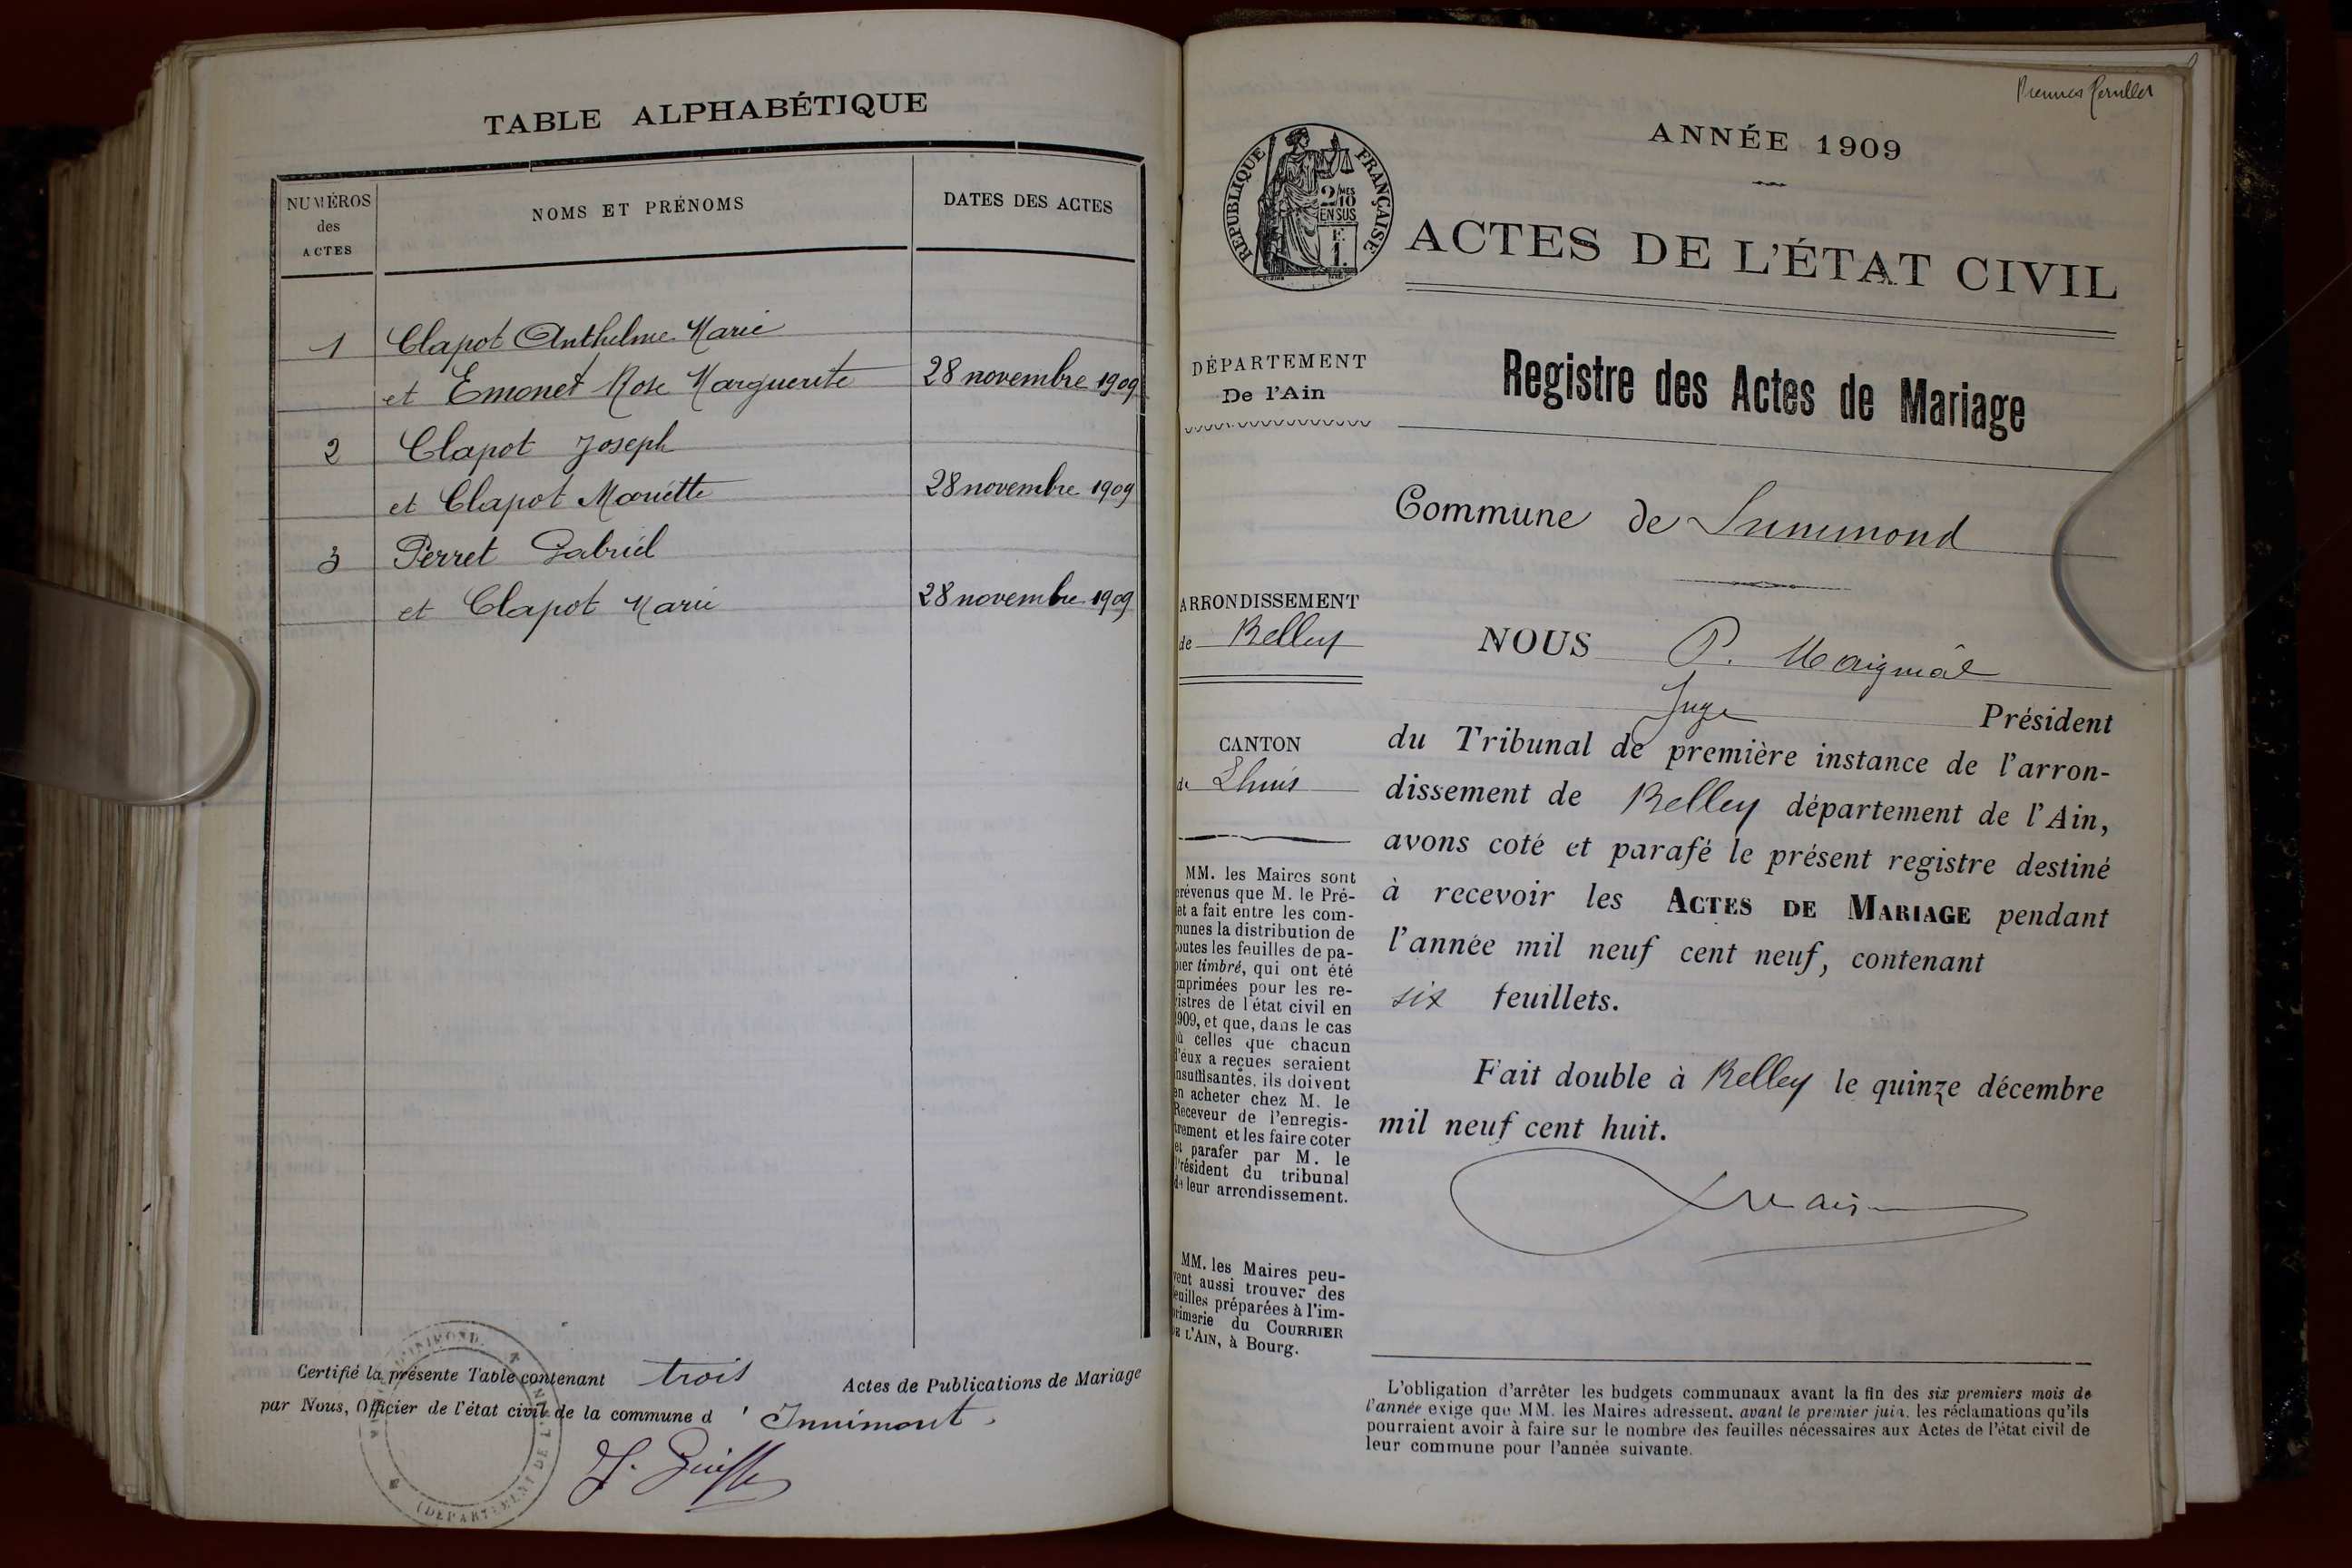 TABLE ALPHABÉTIQUE
NUMÉROS
des
ACTES
NOMS ET PRÉNOMS
DATES DES ACTES
1 Clapot Anthelme Marie
et Emonet Rose Marguerite 28 novembre 1909
2 Clapot Joseph
et Clapot Mariette 28 novembre 1909
3 Perret Gabriel
et Clapot Marie 28 novembre 1909
Certifié la présente Table contenant trois Actes de Publications de Mariage
par Nous, Officier de l'état civil de la commune d' Innimont.
Premier feuillet
ANNÉE 1909
RÉPUBLIQUE FRANÇAISE
2/10MES
EN SUS
F.
1.
ACTES DE L'ÉTAT CIVIL
DÉPARTEMENT
De l'Ain
Registre des Actes de Mariage
Commune de Innimond
ARRONDISSEMENT
de Belley
CANTON
de Lhuis
MM. les Maires sont
prévenus que M. le Pré-
fet a fait entre les com-
munes la distribution de
toutes les feuilles de pa-
pier timbré, qui ont été
imprimées pour les re-
gistres de l'état civil en
1909, et que, dans le cas
où celles que chacun
d'eux a reçues seraient
insuffisantes, ils doivent
en acheter chez M. le
Receveur de l'enregis-
trement et les faire coter
et parafer par M. le
Président du tribunal
de leur arrondissement.
MM. les Maires peu-
vent aussi trouver des
feuilles préparées à l'im-
primerie du COURRIER
DE L'AIN, à Bourg.
NOUS P.
Juge Président
du Tribunal de première instance de l'arron-
dissement de Belley département de l'Ain,
avons coté et parafé le présent registre destiné
à recevoir les ACTES DE MARIAGE pendant
l'année mil neuf cent neuf, contenant
six feuillets.
Fait double à Belley le quinze décembre
mil neuf cent huit.
L'obligation d'arrêter les budgets communaux avant la fin des six premiers mois de
l'année exige que MM. les Maires adressent, avant le premier juin, les réclamations qu'ils
pourraient avoir à faire sur le nombre des feuilles nécessaires aux Actes de l'état civil de
leur commune pour l'année suivante.